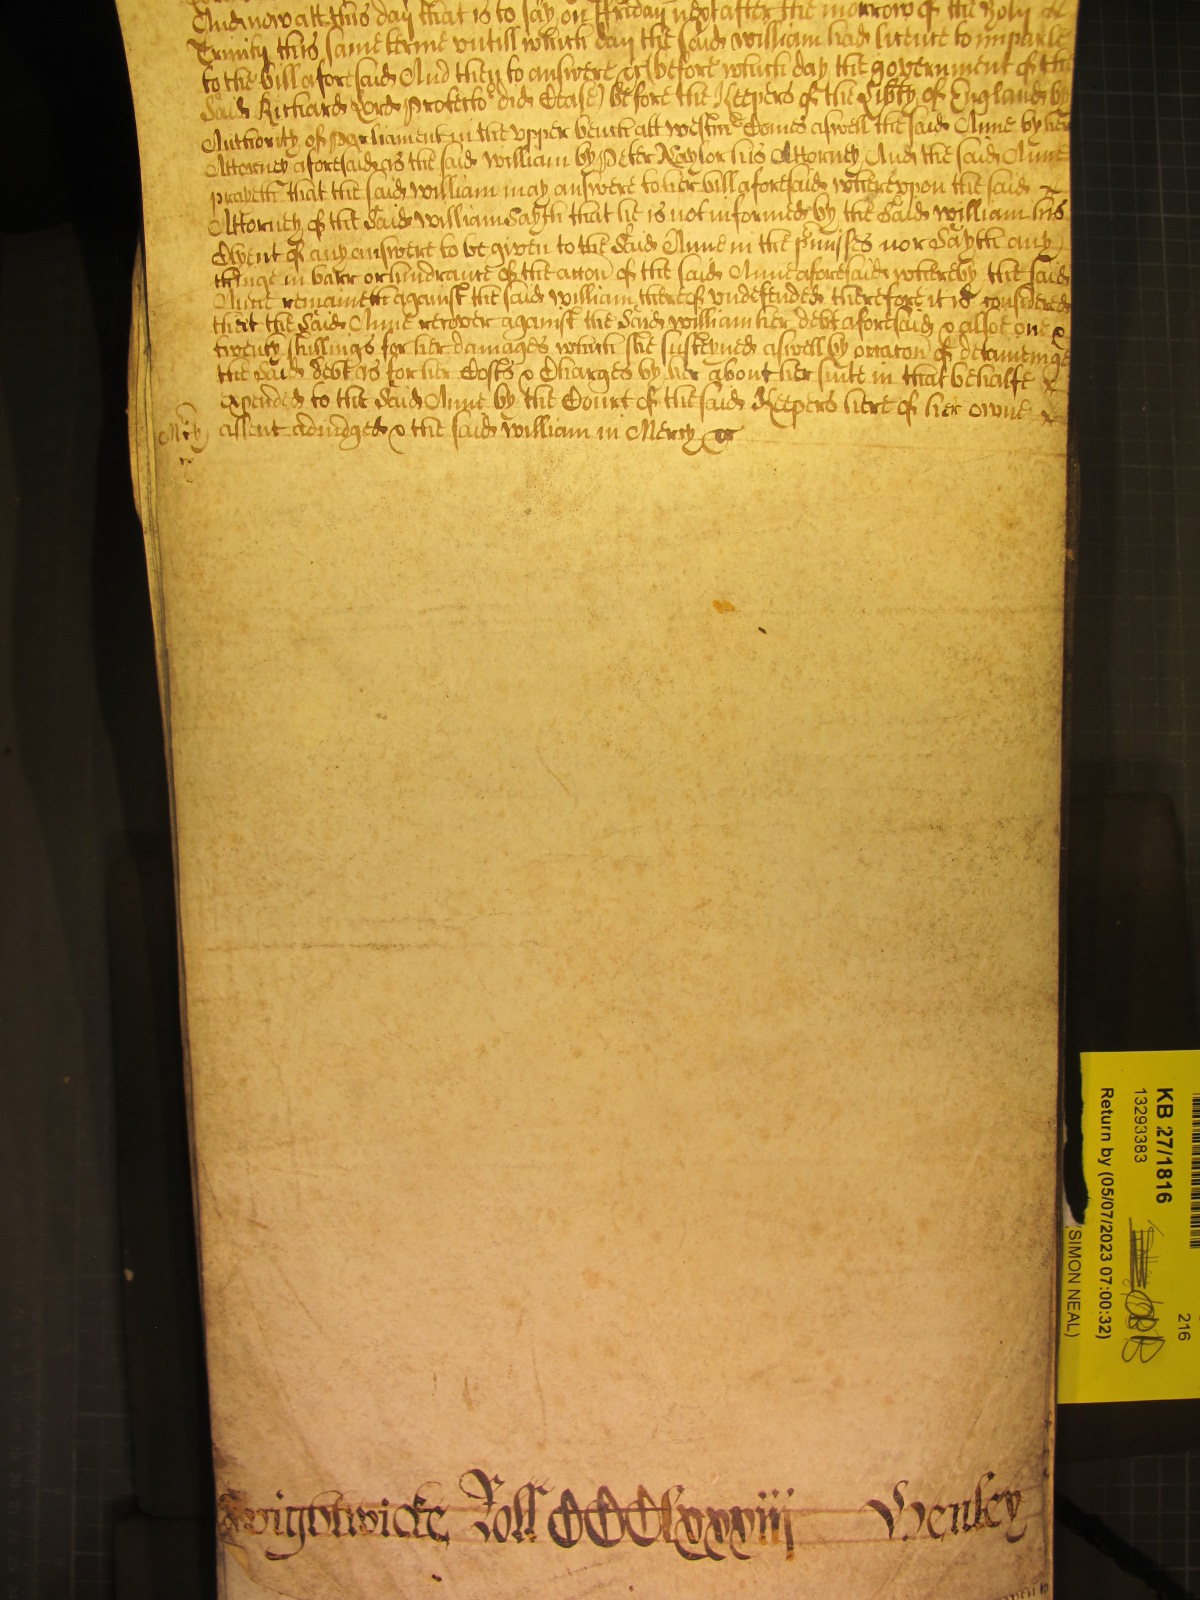 And now att this day that is to say on ffriday next after the morrow of the holy
Trinity this same terme untill which day the said William had licence to imparle
to the bill aforesaid And then to answere &c (before which day the government of the
said Richard Lord Protector did Cease) before the Keepers of the Libty of England by
Authority of Parliament in the upper bench att Westmr Comes aswell the said Anne by her
Attorney aforesaid as the said William by Peter Naylor his Attorney And the said Anne
prayeth that the said William may answere to her bill aforesaid whereupon the said
Attorney of the said William Sayth that he is not informed by the said William his
Clyent of any answere to be given to the said Anne in the pmisses nor Sayth any
thinge in barr or hindrance of the accon of the said Anne aforesaid whereby the said
Anne remaineth against the said William thereof undefended therefore it is considered
that the said Anne recover against the said William her debt aforesaid & allsoe one &
twenty shillings for her damages which she susteyned aswell by occacon of deteineinge
the said debt as for her Costs & Charges by her about her suite in that behalfe
expended to the said Anne by the Court of the said Keepers here of her owne
Mcy assent adiudged & the said William in Mercy &c
Wightwicke Roll CCClxxxviii Henley
KB 27/1816
13293383
Return by (05/07/2023 07:00:32)
(SIMON NEAL)
216